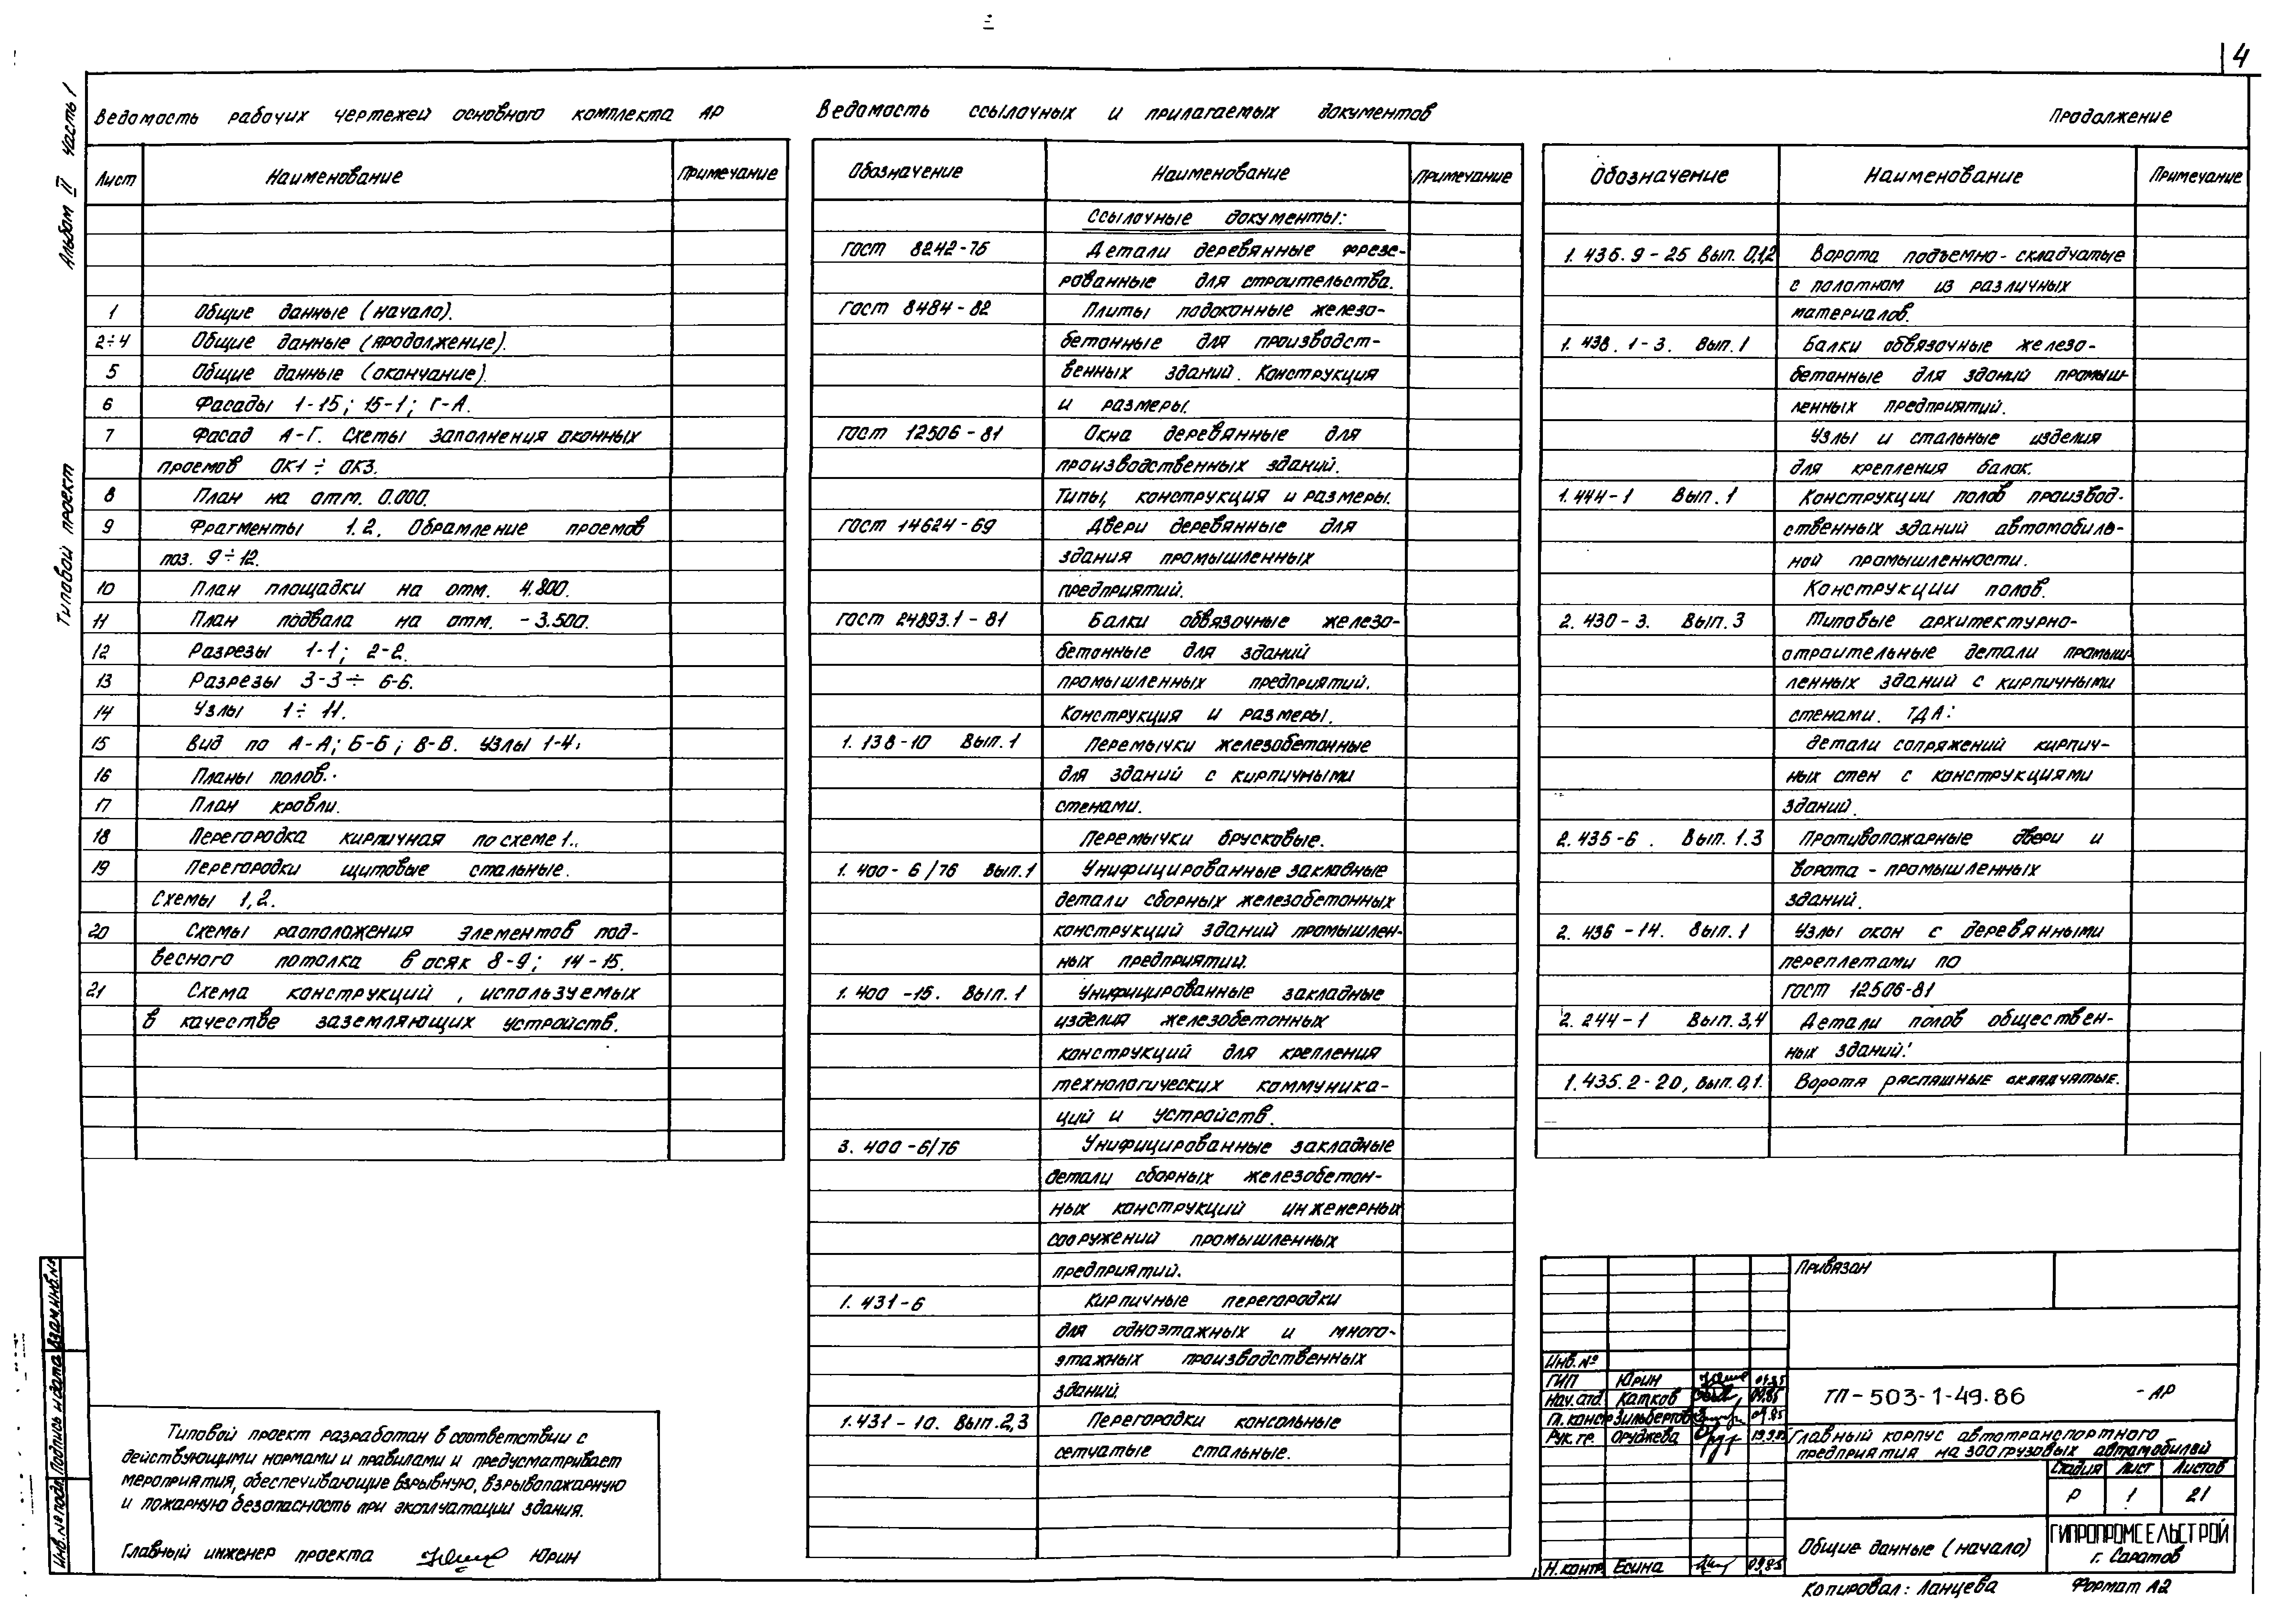 4
Альбом II часть 1
Типовой проект
Ведомость рабочих чертежей основного комплекта АР
Лист Наименование Примечание
1 Общие данные (начало).
2÷4 Общие данные (продолжение).
5 Общие данные (окончание).
6 Фасады 1-15; 15-1; Г-А.
7 Фасад А-Г. Схемы заполнения оконных
проемов ОК1 ÷ ОК3.
8 План на отм. 0.000.
9 Фрагменты 1.2. Обрамление проемов
поз. 9÷12.
10 План площадки на отм. 4.800.
11 План подвала на отм. -3.500.
12 Разрезы 1-1; 2-2.
13 Разрезы 3-3÷ 6-6.
14 Узлы 1÷ 11.
15 Вид по А-А; Б-Б; В-В. Узлы 1-4.
16 Планы полов.
17 План кровли.
18 Перегородка кирпичная по схеме 1.
19 Перегородки щитовые стальные.
Схемы 1,2.
20 Схемы расположения элементов под-
весного потолка в осях 8-9; 14-15.
21 Схема конструкций, используемых
в качестве заземляющих устройств.
Ведомость ссылочных и прилагаемых документов
Обозначение Наименование Примечание
Ссылочные документы:
ГОСТ 8242-75 Детали деревянные фрезе-
рованные для строительства.
ГОСТ 8484-82 Плиты подоконные железо-
бетонные для производст-
венных зданий. Конструкция
и размеры.
ГОСТ 12506-81 Окна деревянные для
производственных зданий.
Типы, конструкция и размеры.
ГОСТ 14624-69 Двери деревянные для
здания промышленных
предприятий.
ГОСТ 24893.1-81 Балки обвязочные железо-
бетонные для зданий
промышленных предприятий.
Конструкция и размеры.
1.138-10 Вып.1 Перемычки железобетонные
для зданий с кирпичными
стенами.
Перемычки брусковые.
1.400-6/76 Вып.1 Унифицированные закладные
детали сборных железобетонных
конструкций зданий промышлен-
ных предприятий.
1.400-15. Вып.1 Унифицированные закладные
изделия железобетонных
конструкций для крепления
технологических коммуника-
ций и устройств.
3.400-6/76 Унифицированные закладные
детали сборных железобетон-
ных конструкций инженерных
сооружений промышленных
предприятий.
1.431-6 Кирпичные перегородки
для одноэтажных и много-
этажных производственных
зданий
1.431-10. Вып.2,3 Перегородки консольные
сетчатые стальные.
Продолжение
Обозначение Наименование Примечание
1.435.9-25 Вып. 0,1,2 Ворота подъемно-складчатые
с полотном из различных
материалов.
1.438.1-3. Вып.1 Балки обвязочные железо-
бетонные для зданий промыш-
ленных предприятий.
Узлы и стальные изделия
для крепления балок.
1.444-1 Вып.1 Конструкции полов производ-
ственных зданий автомобиль-
ной промышленности.
Конструкции полов.
2.430-3. Вып.3 Типовые архитектурно-
строительные детали промыш-
ленных зданий с кирпичными
стенами. ТДА:
детали сопряжений кирпич-
ных стен с конструкциями
зданий.
2.435-6. Вып. 1.3 Противопожарные двери и
ворота - промышленных
зданий.
2.436-14. Вып.1 Узлы окон с деревянными
переплетами по
ГОСТ 12506-81
2.244-1 Вып.3,4 Детали полов обществен-
ных зданий.
1.435.2-20, вып.0,1. Ворота распашные складчатые.
Типовой проект разработан в соответствии с
действующими нормами и правилами и предусматривает
мероприятия, обеспечивающие взрывную, взрывопожарную
и пожарную безопасность при эксплуатации здания.
Главный инженер проекта Юрин
Инв.№ подл. Подпись и дата Взам.инв.№
Привязан
Инв.№
ГИП Юрин
Нач.отд Катков 09.85
Гл.констр Зильбертов 09.85
Рук.гр. Оруджева
Н.контр Есина 09.85
ТП-503-1-49.86 -АР
Главный корпус автотранспортного
предприятия на 300 грузовых автомобилей
Стадия Лист Листов
Р 1 21
Общие данные (начало)
ГИПРОПРОМСЕЛЬСТРОЙ
г. Саратов
Копировал: Ланцева Формат А2